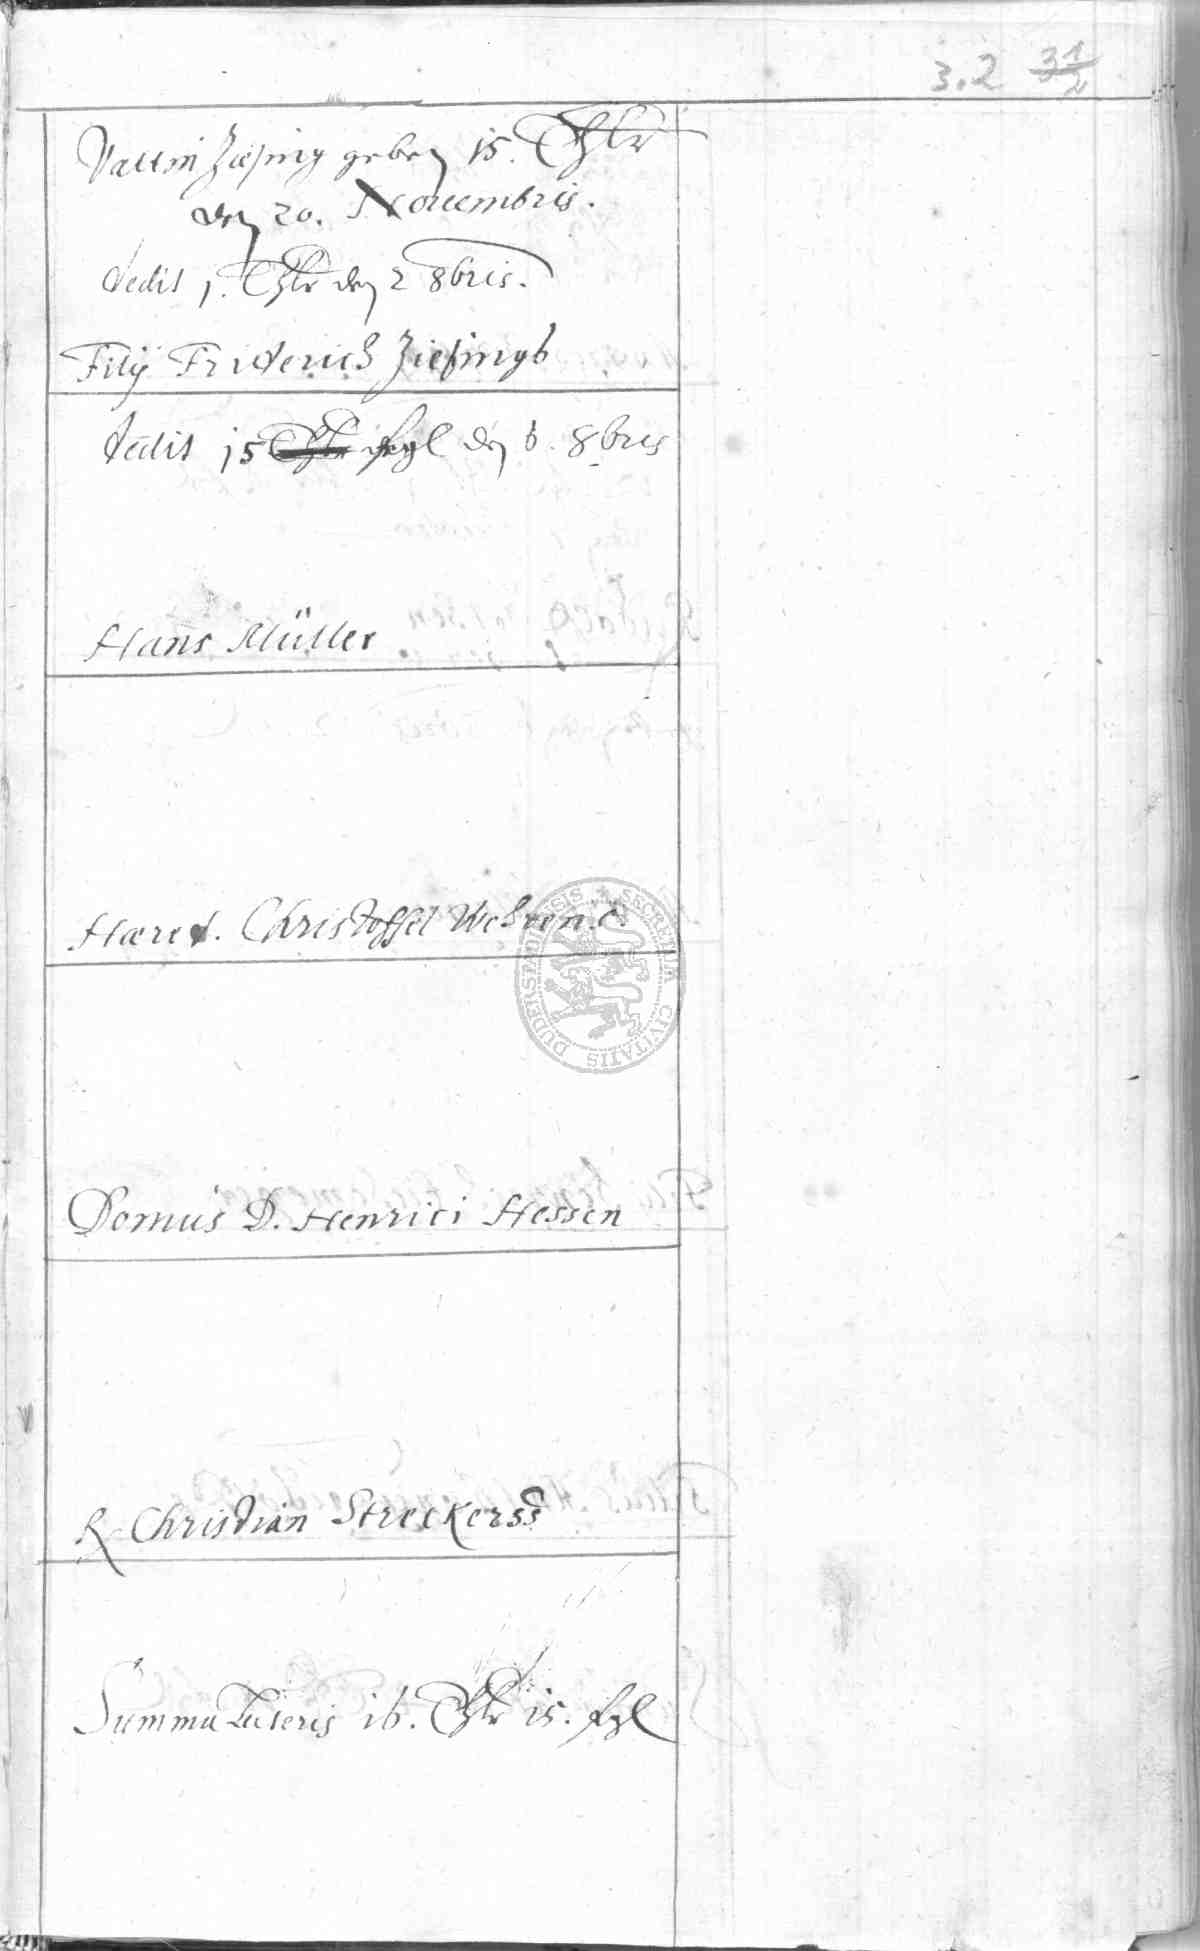 3.2 31/2
Valtin Ziesing geben 15. Thlr
den 20. Novembris.
dedit 1. Thlr den 2 8bris.
Filij Friderich Ziesings
dedit 15 Thlr sgl den 6. 8bris
Hans Müller
Hæred. Christoffel Wehren.
Domus D. Henrici Hessen
R Christian Streckerss
Summa Lateris 16. Thlr 15. sgl
SECRETUM CIVITATIS DUDERSTADENSIS